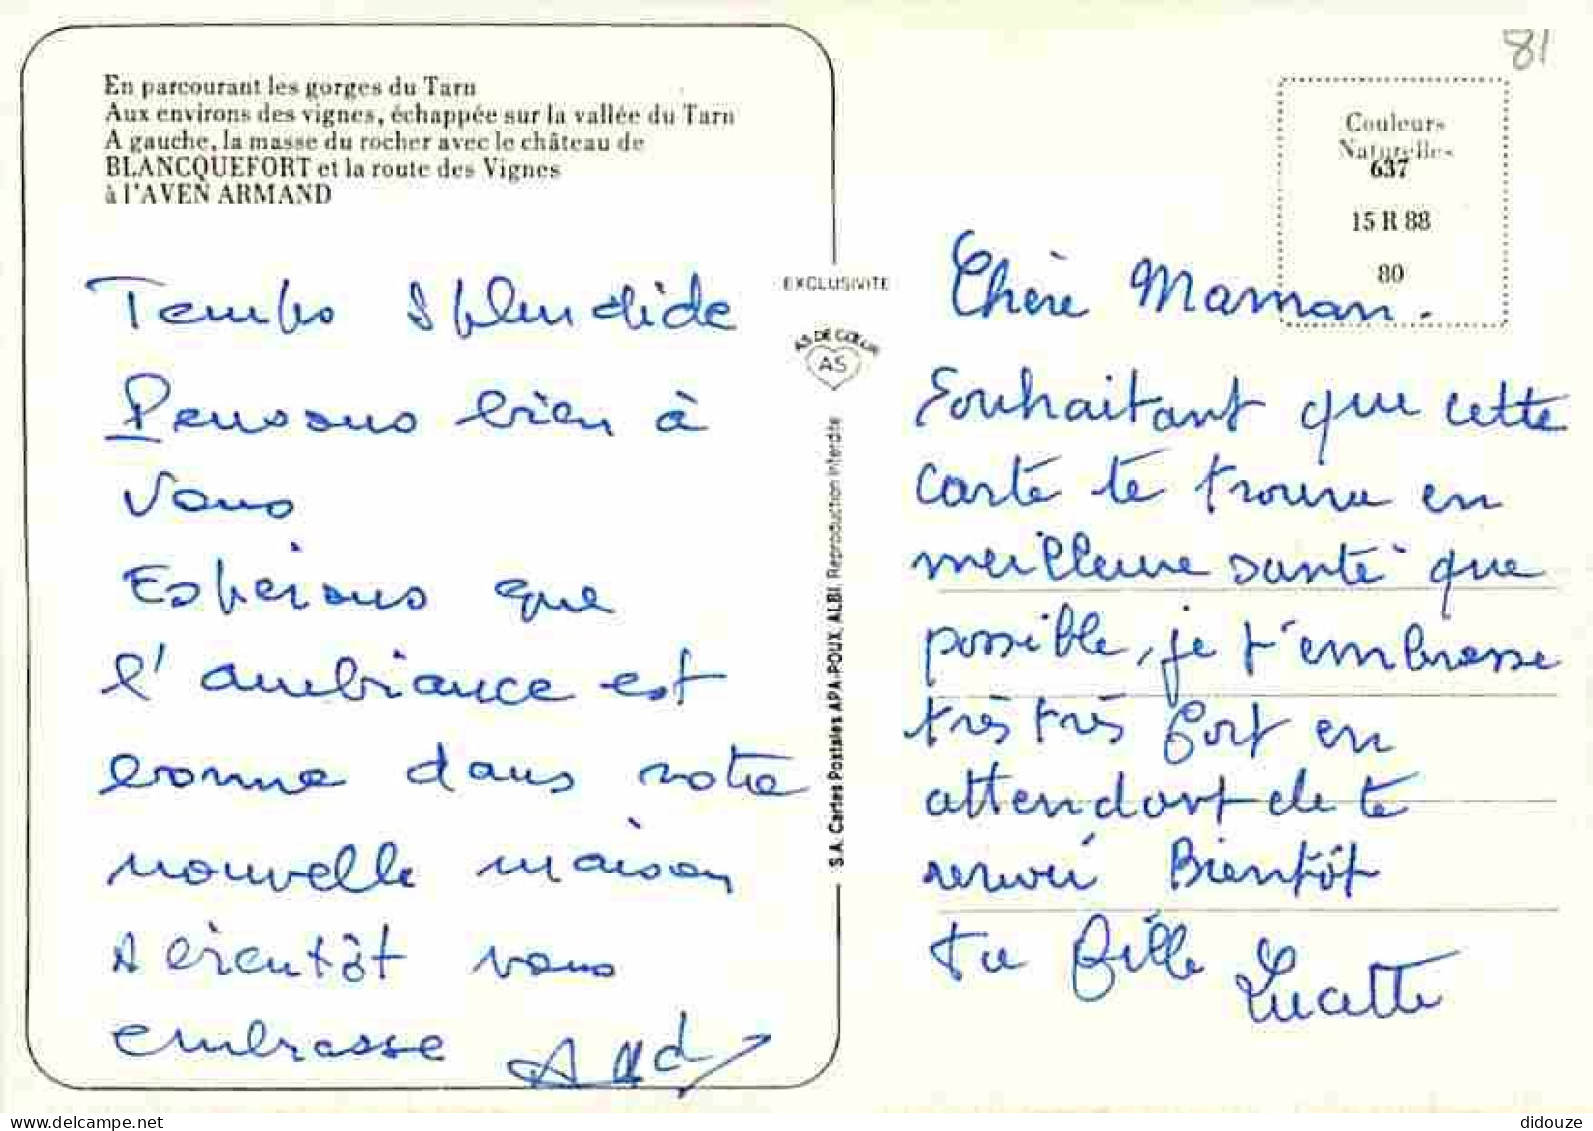 81
En parcourant les gorges du Tarn
Aux environs des vignes, échappée sur la vallée du Tarn
A gauche, la masse du rocher avec le château de
BLANCQUEFORT et la route des Vignes
à l'AVEN ARMAND
Couleurs
Naturelles
637
15 R 88
80
Temps Splendide
Pensons bien à
Vous
Espérons que
l'ambiance est
bonne dans votre
nouvelle maison
A bientôt vous
embrasse
EXCLUSIVITE
AS DE CŒUR
AS
S.A. Cartes Postales APA-POUX, ALBI. Reproduction interdite
Chère Maman.
Souhaitant que cette
carte te trouve en
meilleure santé que
possible, je t'embrasse
très très fort en
attendant de te
revoir Bientôt
ta fille Lucette
www.delcampe.net
didouze